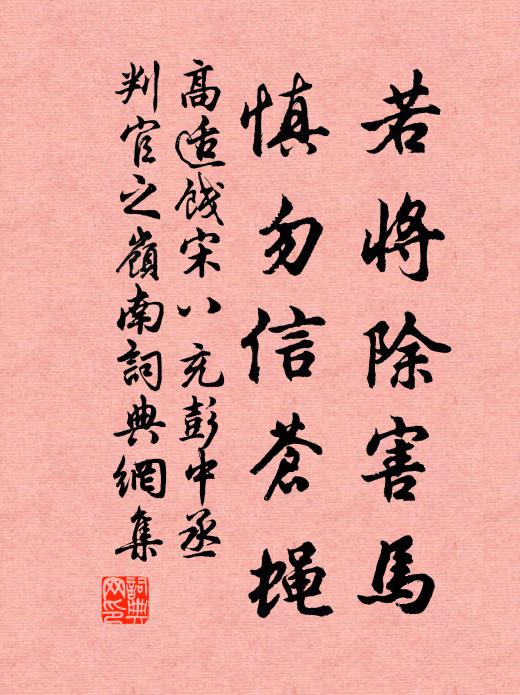 若將除害馬
慎勿信蒼蝇
高适餞宋八充彭中丞
判官之嶺南詞典網集
詞典
网印